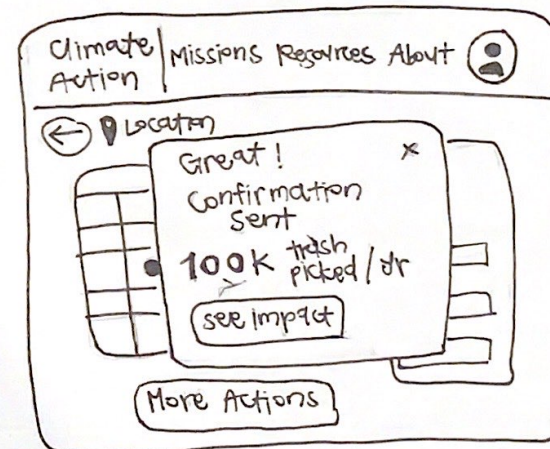 Climate
Action
Missions Resources About
Location
Great!
x
Confirmation
Sent
100K trash
picked / yr
see impact
More Actions